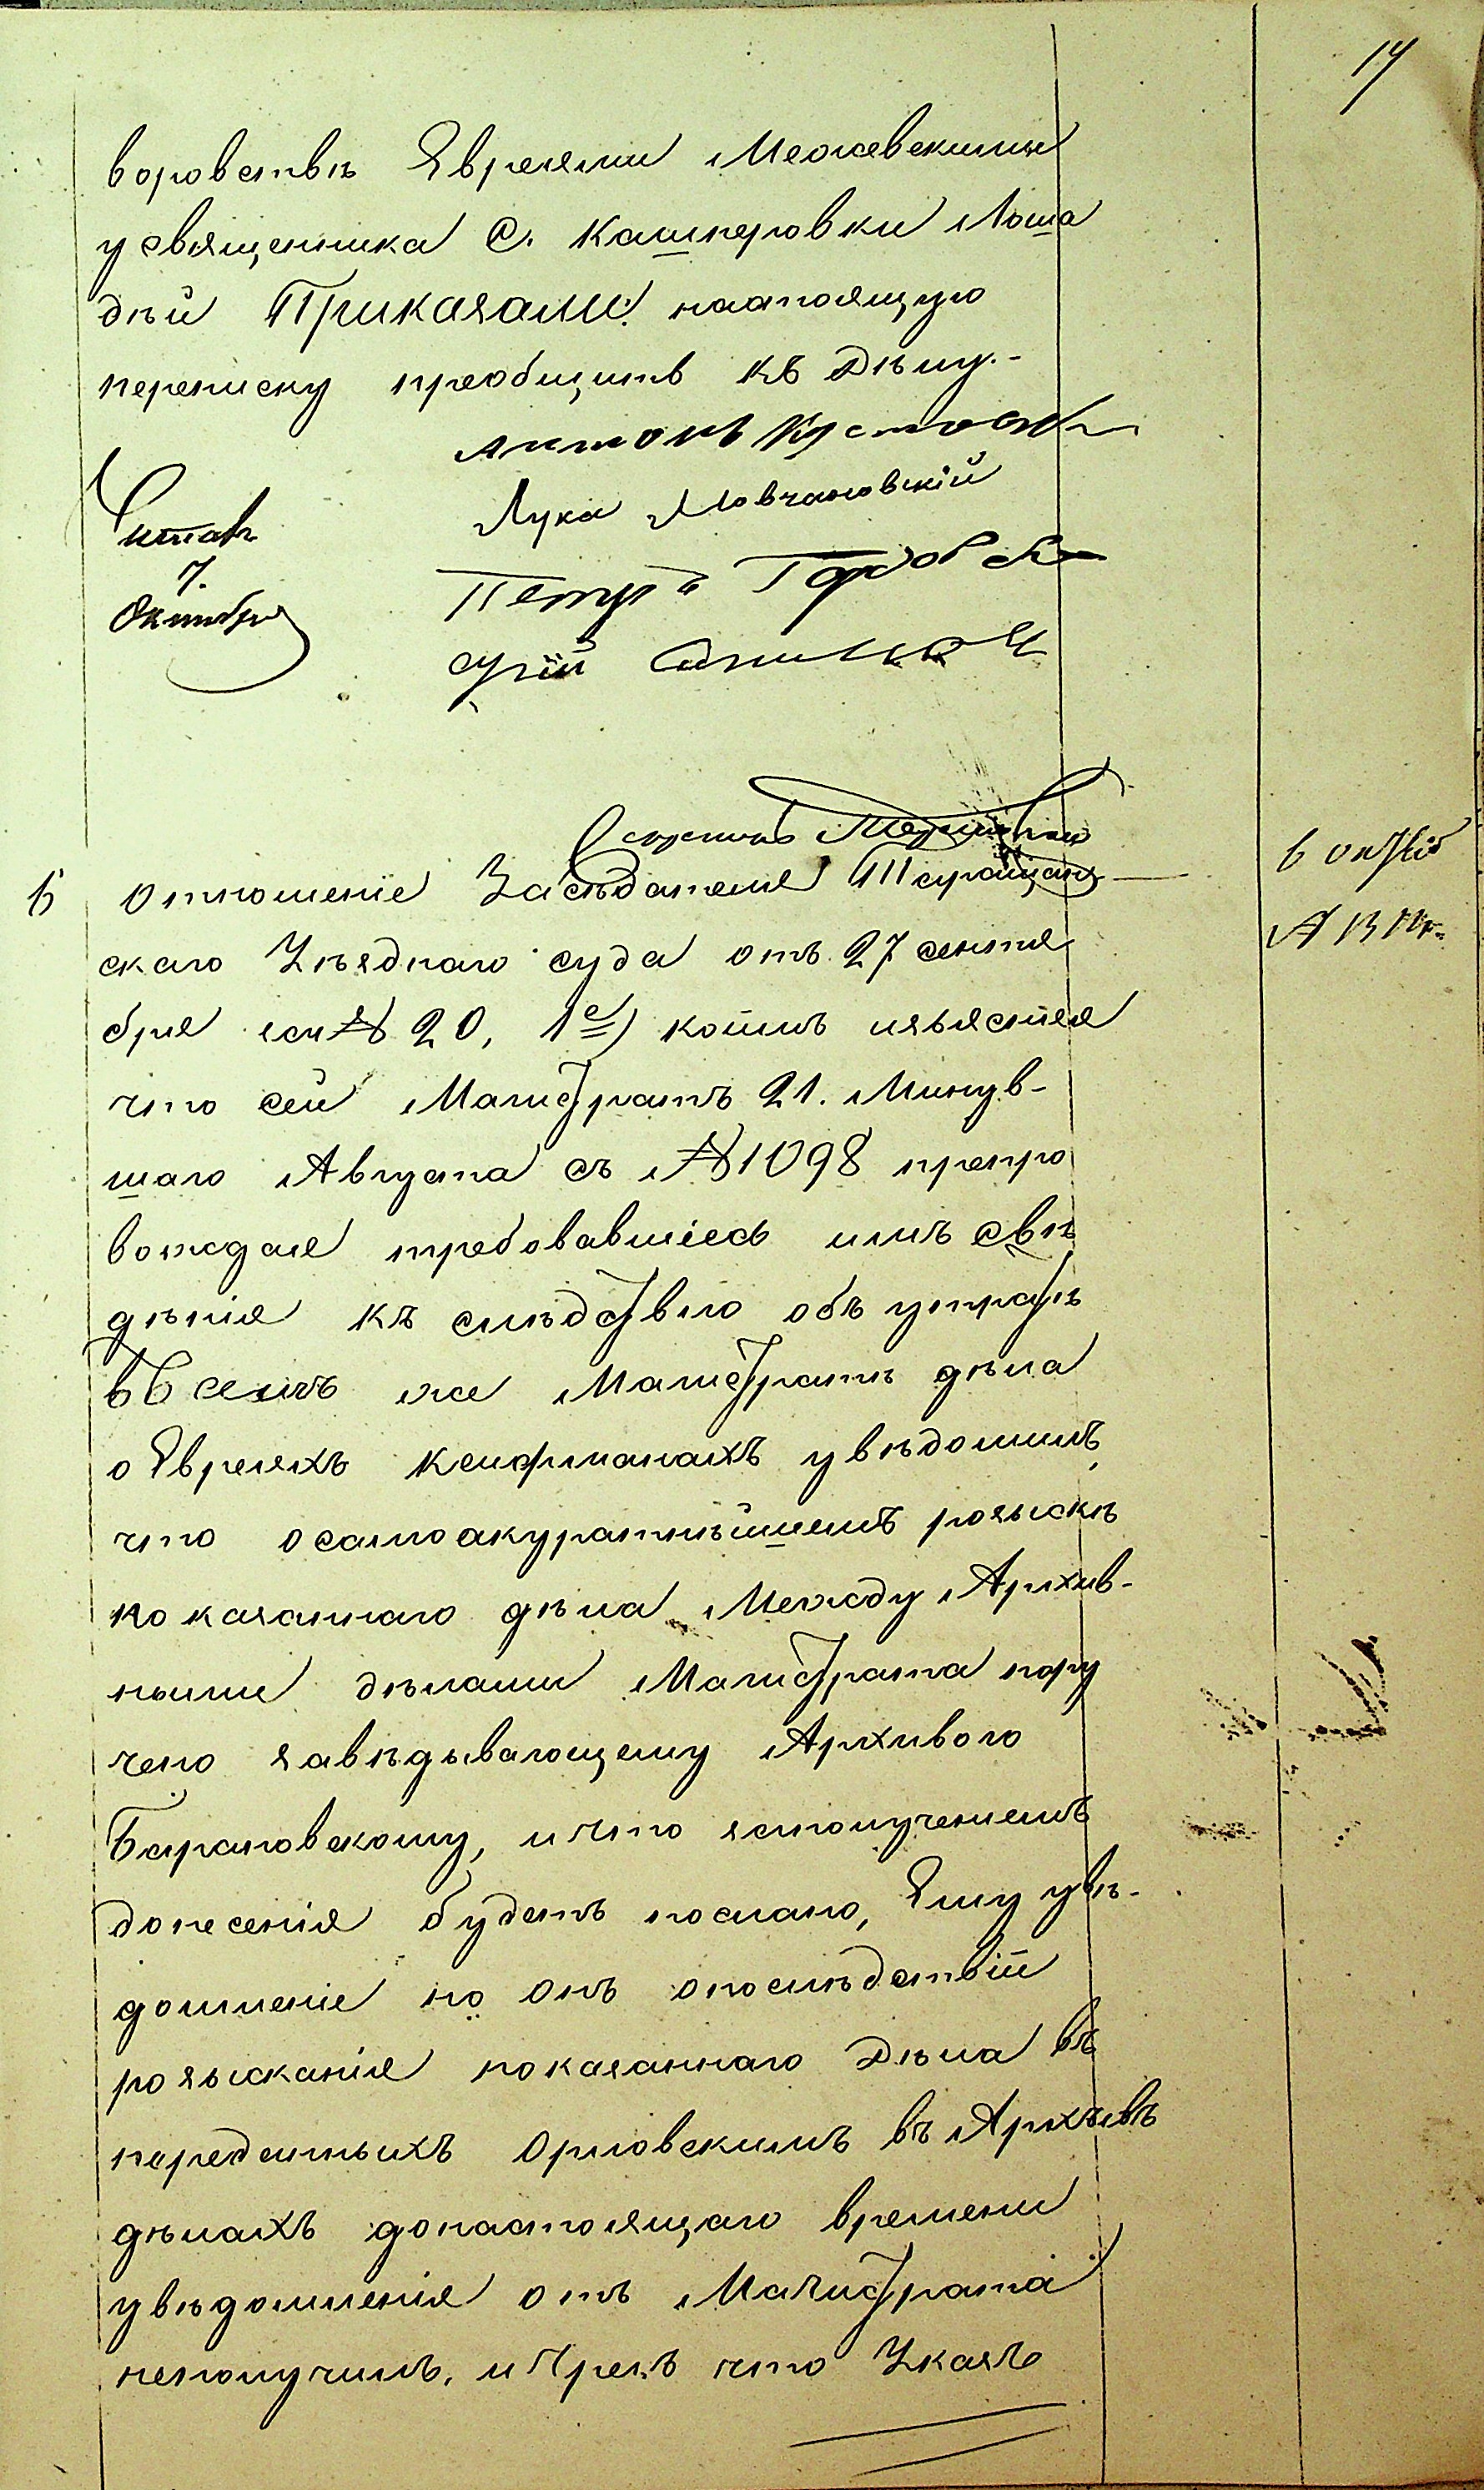 14
воровствѣ Евреями Межевскими
у священника С. Кашперовки Лоша
дѣй Приказали: настоящую
переписку преобщить къ Дѣлу.-
Антонъ
Лука Мовчановскій
Петръ
Читалъ
7.
Октября
Отношеніе Засѣдателя Таращан-
скаго Уѣзднаго суда отъ 27 сентя
бря № 20, коимъ изъясняя
что сей Магистратъ 21. Минув-
шаго Августа съ № 1098 препро
вождая требовавшіесь имъ свѣ
дѣнія къ слѣдствію объ утратѣ
въ семъ же Магистратѣ дѣла
о Евреяхъ Кенфманахъ увѣдомилъ,
что о самоакуратнѣйшемъ розыскѣ
показаннаго дѣла Между Архив-
ными дѣлами Магистрата пору
чено завѣдывающему Архивою
Барановскому, и что за полученіемъ
донесенія будетъ послано, Ему увѣ-
домленіе но онъ о послѣдствій
розысканія показаннаго Дѣла въ
переданныхъ Орловскимъ въ Архивъ
дѣлахъ донастоящаго времени
увѣдомленія отъ Магистрата
неполучилъ, и Чрезъ что Указъ
6 октяб